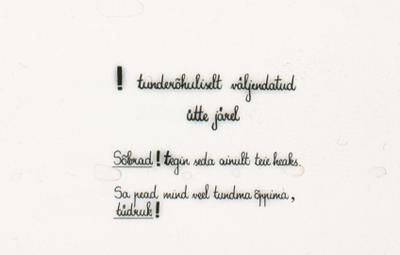 ! tunderõhuliselt väljendatud
ütte järel
Sõbrad! tegin seda ainult teie heaks.
Sa pead mind veel tundma õppima,
tüdruk!